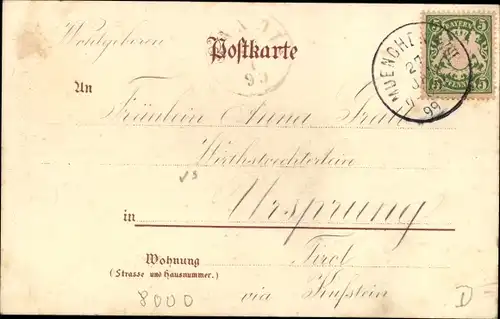 Wohlgeboren
Postkarte
BAYERN
5 5
PFENNIG
MUENCHE
27
99
99
An
Fräulein Anna
Wirthstoechterlein
in Ursprung
Wohnung
(Strasse und Hausnummer.)
Tirol
via Kufstein
8000
D